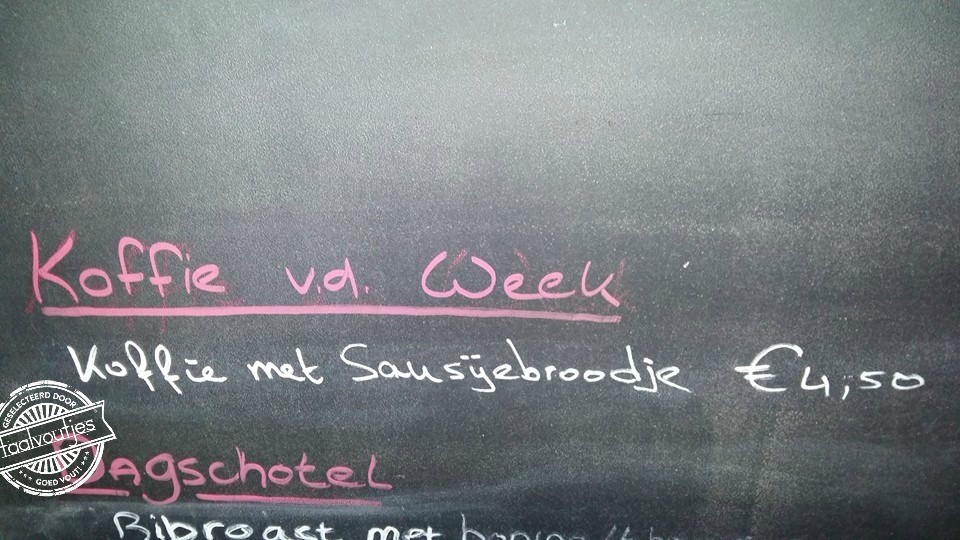 Koffie v.d. Week
Koffie met Sausijebroodje €4,50
GESELECTEERD DOOR
taalvoutjes
GOED VOUT!
Dagschotel
Bibroast met